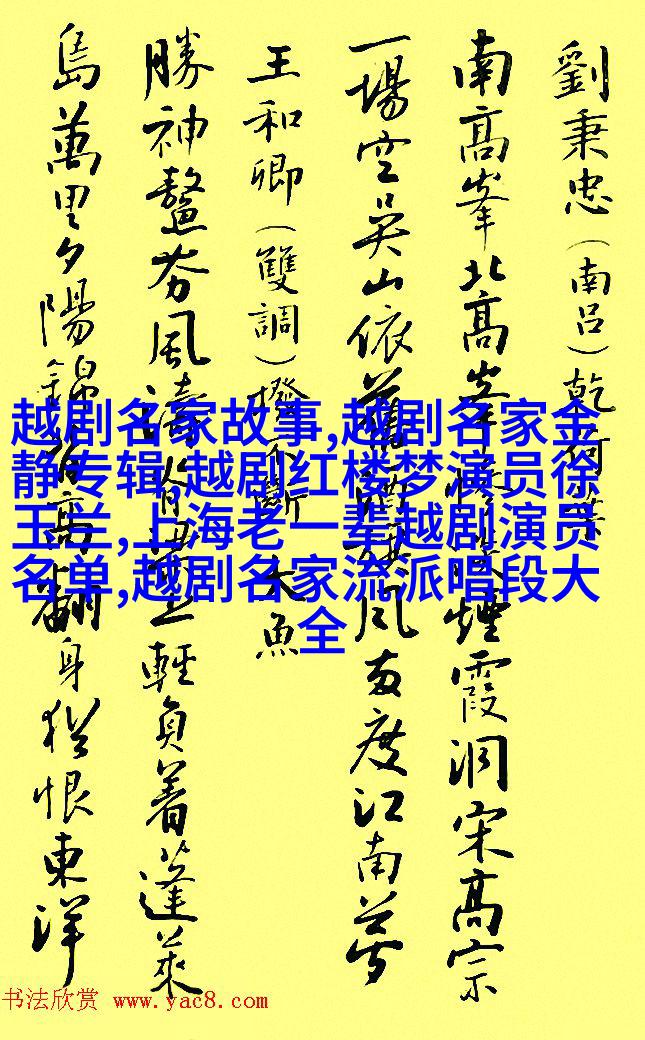 劉秉忠(南呂)乾荷
南高峯北高峯煙霞洞宋高宗
一場空吳山依舊風兩度江南夢
王和卿(雙調)撥不斷 大魚
勝神鰲夯風濤脊上輕負着蓬萊
島萬里夕陽錦背高翻身猶恨東洋
越剧名家故事,越剧名家金
静专辑,越剧红楼梦演员徐
玉兰,上海老一辈越剧演员
名单,越剧名家流派唱段大
全
书法欣赏 www.yac8.com